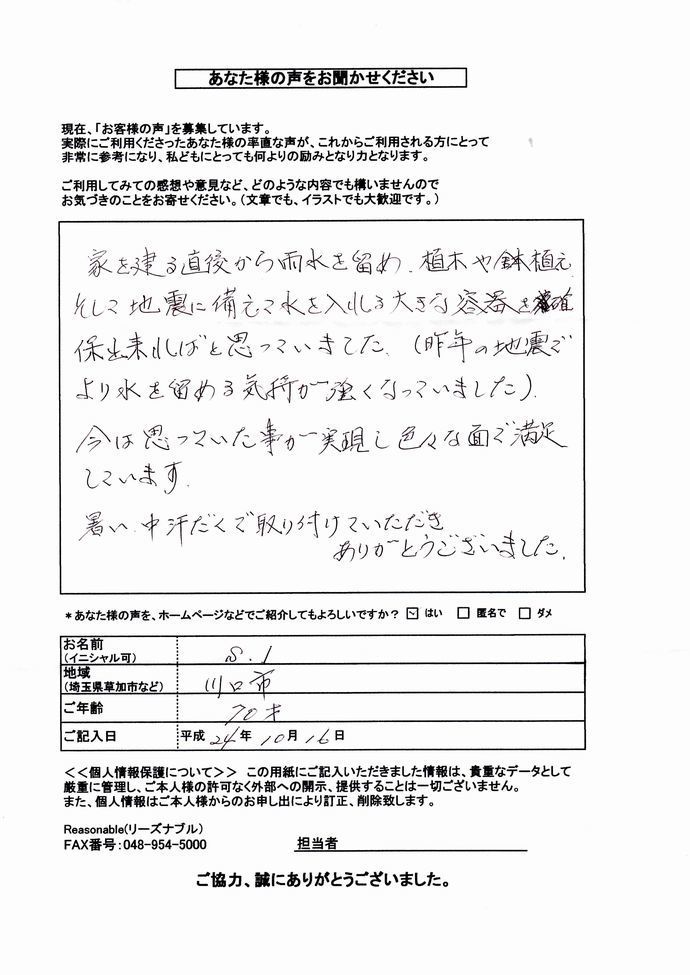 あなた様の声をお聞かせください
現在、「お客様の声」を募集しています。
実際にご利用くださったあなた様の率直な声が、これからご利用される方にとって
非常に参考になり、私どもにとっても何よりの励みとなり力となります。
ご利用してみての感想や意見など、どのような内容でも構いませんので
お気づきのことをお寄せください。（文章でも、イラストでも大歓迎です。）
家を建る直後から雨水を留め、植木や鉢植え
そして地震に備えて水を入れる大きな容器を確
保出来ればと思っていました。（昨年の地震で
より水を留める気持が強くなっていました）。
今は思っていた事が実現し色々な面で満足
しています。
暑い中汗だくで取り付けていただき
ありがとうございました。
*あなた様の声を、ホームページなどでご紹介してもよろしいですか? ☑ はい □ 匿名で □ ダメ
お名前
(イニシャル可) S.I
地域
(埼玉県草加市など) 川口市
ご年齢 70才
ご記入日 平成 24年 10月 16日
<<個人情報保護について>> この用紙にご記入いただきました情報は、貴重なデータとして
厳重に管理し、ご本人様の許可なく外部への開示、提供することは一切ございません。
また、個人情報はご本人様からのお申し出により訂正、削除致します。
Reasonable(リーズナブル)
FAX番号:048-954-5000 担当者
ご協力、誠にありがとうございました。